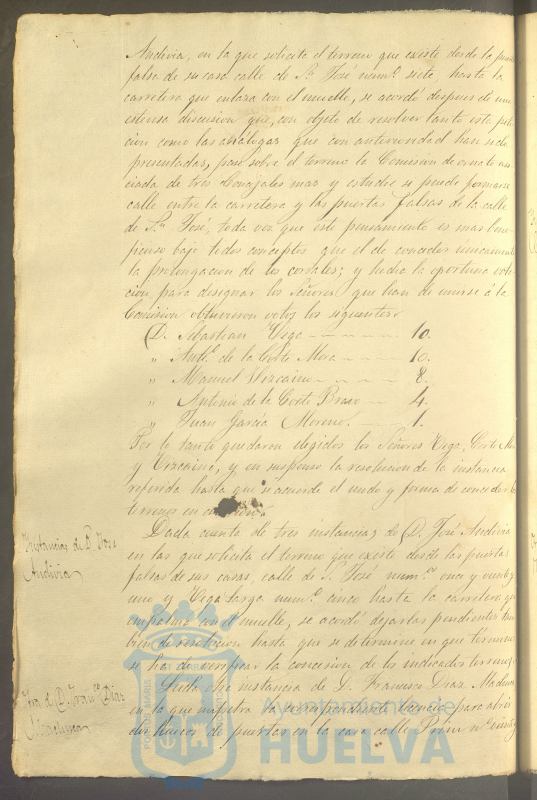 Andivia, en la que solicita el terreno que existe desde la puerta
falsa de su casa calle de Sn. José numo. siete, hasta la
carretera que enlaza con el muelle, se acordó despues de una
estensa discusion que, con objeto de resolver tanto esta peti
cion como las análogas que con anterioridad han sido
presentadas, pase sobre el terreno la Comision de ornato aso
ciada de tres Concejales mas y estudie si puede formarse
calle entre la carretera y las puertas falsas de la calle
de Sn. José, toda vez que este pensamiento es mas bene
ficioso bajo todos conceptos que el de conceder unicamente
la prolongacion de los corrales; y hecha la oportuna vota
cion para designar los Señores que han de unirse á la
Comision obtuvieron votos los siguientes.
D. Sebastian Vega 10.
" Anto. de la Corte Mora 10.
" Manuel Vizcaino 8.
" Antonio de la Corte Bravo 4.
" Juan García Moreno. 1.
Por lo tanto quedaron elegidos los Señores Vega, Corte Mora
y Vizcaino, y en suspenso la resolucion de la instancia
referida hasta que se acuerde el modo y forma de conceder los
terrenos en
Instancias de D. José
Andivia
Dada cuenta de tres instancias de D. José Andivia
en las que solicita el terreno que existe desde las puertas
falsas de sus casas, calle de S. José numos. once y veinte y
uno y Vega Larga numo. cinco hasta la carretera que
empalma con el muelle, se acordó dejarlas pendientes tam
bien de resolucion hasta que se determine en que terminos
se ha de verificar la concesion de los indicados terrenos.
Ytra. de D. Franco. Diaz
Leida otra instancia de D. Francisco Diaz
en la que impetra la correspondiente licencia para abrir
dos huecos de puertas en la casa calle Prim no.
PORTUS MARIS
Ayuntamiento de
HUELVA